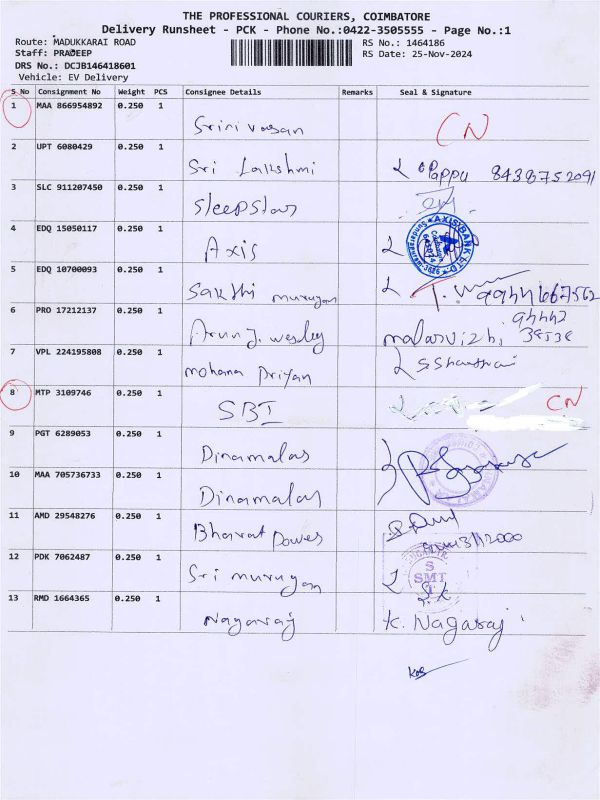 THE PROFESSIONAL COURIERS, COIMBATORE
Delivery Runsheet - PCK - Phone No.:0422-3505555 - Page No.:1
Route: MADUKKARAI ROAD
RS No.: 1464186
Staff: PRADEEP
RS Date: 25-Nov-2024
DRS No.: DCJB146418601
Vehicle: EV Delivery
S No Consignment No Weight PCS Consignee Details Remarks Seal & Signature
1 MAA 866954892 0.250 1
Srinivasan CN
2 UPT 6080429 0.250 1
Sri Lakshmi Pappu 8438752091
3 SLC 911207450 0.250 1
Sleepstar
4 EDQ 15050117 0.250 1
Axis AXIS BANK LTD
5 EDQ 10700093 0.250 1
Sakthi murugan 9944667562
6 PRO 17212137 0.250 1
Arun J. wesley malarvizhi
7 VPL 224195808 0.250 1
mohana Priyan
8 MTP 3109746 0.250 1
SBI CN
9 PGT 6289053 0.250 1
Dinamalar
10 MAA 705736733 0.250 1
Dinamalar
11 AMD 29548276 0.250 1
Bharat Power
12 PDK 7062487 0.250 1
Sri murugan SMT
13 RMD 1664365 0.250 1
Nagaraj K. Nagaraj